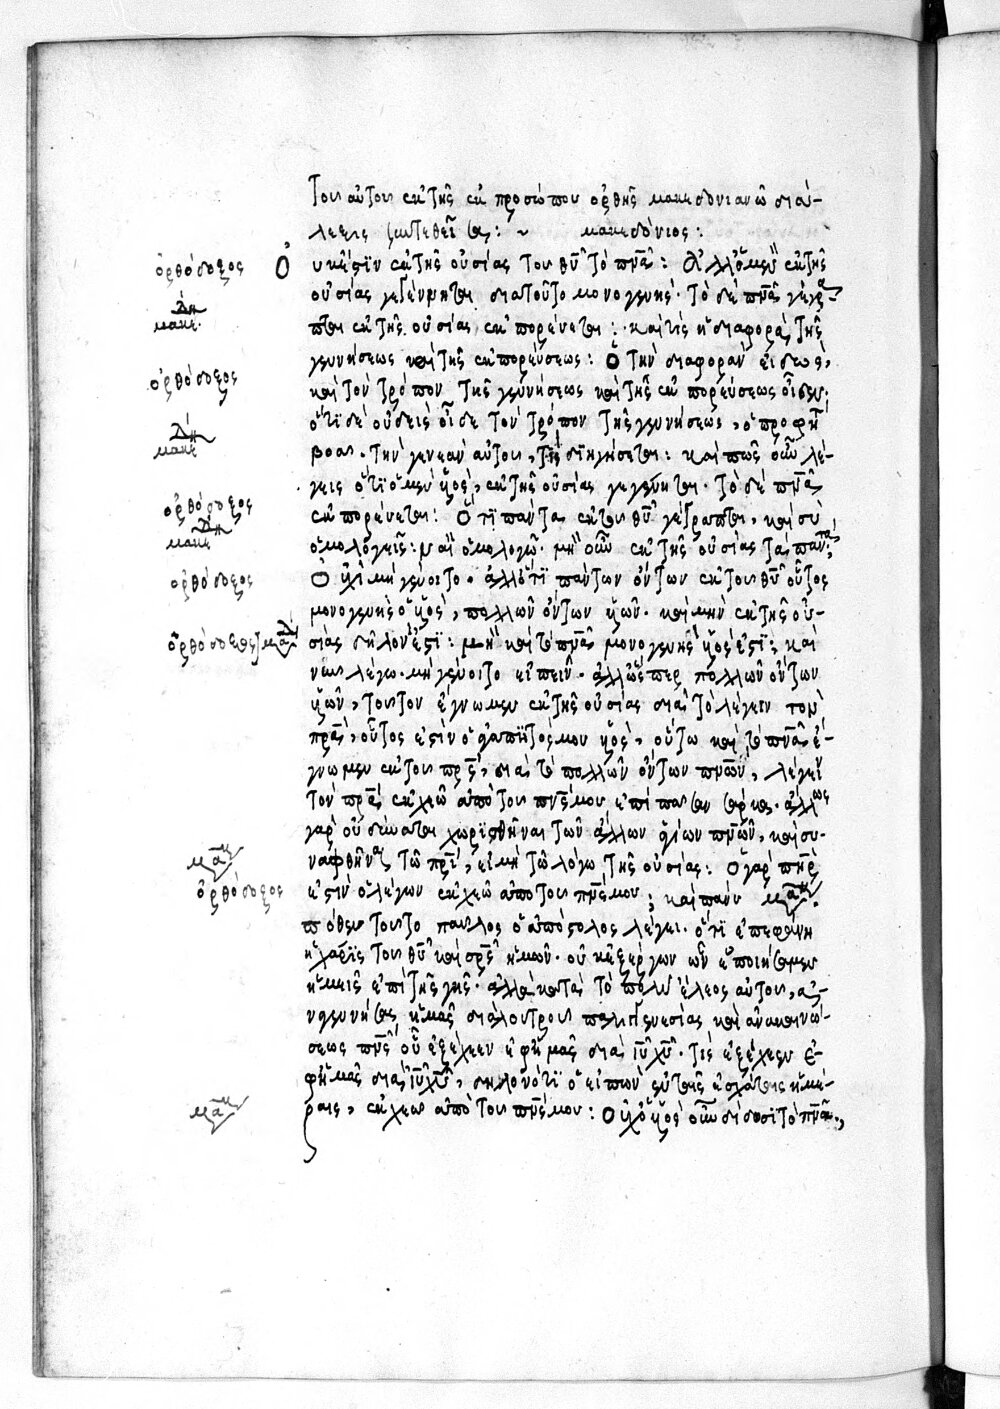 Τοῦ αὐτοῦ ἐκ τῆς ἐκ προσώπου ὀρθῆς μακεδονιανῶ διά-
λεξις συντεθεῖσα: ~ μακεδόνιος:
ὀρθόδοξος Οὐκ ἔστιν ἐκ τῆς οὐσίας τοῦ θῦ τὸ πνᾶ: Ἀλλ' ὁ μὲν ἐκ τῆς
οὐσίας γεγέννηται διὰ τοῦτο μονογενής. τὸ δὲ πνᾶ
μακε. ται ἐκ τῆς οὐσίας ἐκπορεύεται: καὶ τίς ἡ διαφορὰ τῆς
γεννήσεως καὶ τῆς ἐκπορεύσεως: Ὁ τὴν διαφορὰν εἰδὼς,
ὀρθόδοξος καὶ τὸν τρόπον τῆς γεννήσεως καὶ τῆς ἐκπορεύσεως οἶδεν.
ὅτι δὲ οὐδεὶς οἶδε τὸν τρόπον τῆς γεννήσεως, ὁ προφήτης
μακε βοᾶ. τὴν γενεὰν αὐτοῦ, τίς διηγήσεται: καὶ πῶς οὖν λέ-
γεις ὅτι ὁ μὲν ὑἱὸς, ἐκ τῆς οὐσίας γεγέννηται. τὸ δὲ πνᾶ
ὀρθόδοξος ἐκπορεύεται: Ὅτι πάντα ἐκ τοῦ θῦ γέγραπται, καὶ σὺ
μακε ὁμολογεῖς: ναὶ ὁμολογῶ. μὴ οὖν ἐκ τῆς οὐσίας τὰ πάντα;
ὀρθόδοξος Οὐχί μὴ γένοιτο. ἀλλ' ὅτι πάντων ὄντων ἐκ τοῦ θῦ οὗτος
μονογενὴς ὁ ὑἱὸς, πολλῶν ὄντων ὑἱῶν. καὶ μὴν ἐκ τῆς οὐ-
ὀρθόδοξος σίας δηλονότι: μὴ καὶ τὸ πνᾶ μονογενὴς ὑἱός ἐστι; καὶ
λέγω. μὴ γένοιτο εἰπεῖν. ἀλλ' ὥσπερ πολλῶν ὄντων
ὑἱῶν, τοῦτον ἔγνωμεν ἐκ τῆς οὐσίας διὰ τὸ λέγειν τὸν
πρᾶ, οὗτός ἐστιν ὁ ἀγαπητός μου ὑἱὸς, οὕτω καὶ τὸ πνᾶ ἔ-
γνωμεν ἐκ τοῦ πρς, διὰ τὸ πολλῶν ὄντων πνων, λέγειν
τὸν πρᾶ ἐκχεῶ ἀπὸ τοῦ πνς μου ἐπὶ πᾶσαν σάρκα. ἄλλως
γὰρ οὐ δύναται χωρισθῆναι τῶν ἄλλων ἁγίων πνων, καὶ συ-
ναφθῆναι τῶ πρὶ, εἰ μὴ τῶ λόγω τῆς οὐσίας: Ὁ γὰρ πὴρ
ὀρθόδοξος ἐστὶν ὁ λέγων ἐκχεῶ ἀπὸ τοῦ πνς μου; καὶ πάνυ
πόθεν τοῦτο παυλος ὁ ἀπόστολος λέγει. ὅτι ἐπεφάνη
ἡ χάρις τοῦ θῦ καὶ σρς ἡμῶν. οὐκ ἐξ ἔργων ὧν ἐποιήσαμεν
ἡμεῖς ἐπὶ τῆς γῆς. ἀλλὰ κατὰ τὸ πολὺ ἔλεος αὐτοῦ, ἀ-
ναγεννήσας ἡμᾶς διὰ λουτροῦ παλιγγενεσίας καὶ ἀνακαινώ-
σεως πνς οὗ ἐξέχεεν ἐφ' ἡμᾶς διὰ ιυ χυ. τίς ἐξέχεεν ἐ-
φ' ἡμᾶς διὰ ιυ χυ, δηλονότι ὁ εἰπὼν ἐν ταῖς ἐσχάταις ἡμέ-
ραις, ἐκχεῶ ἀπὸ τοῦ πνς μου: Οὐχ ὁ ὑἱὸς οὖν δίδωσι τὸ πνᾶ,